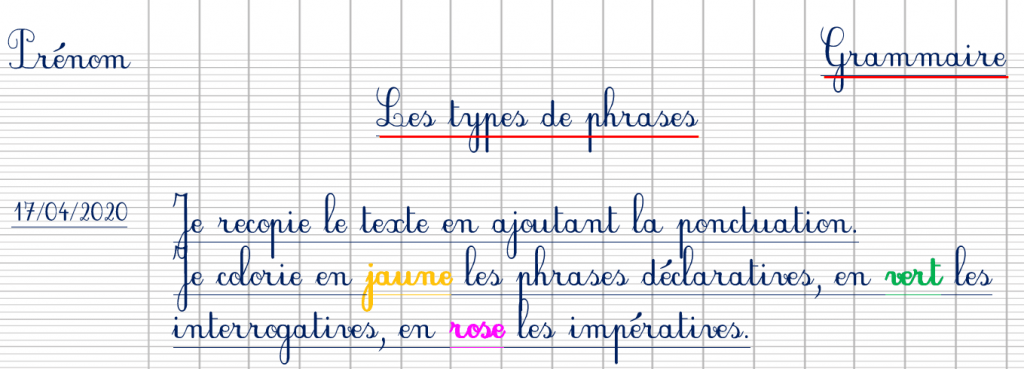 Prénom
Grammaire
Les types de phrases
17/04/2020
Je recopie le texte en ajoutant la ponctuation.
Je colorie en jaune les phrases déclaratives, en vert les
interrogatives, en rose les impératives.